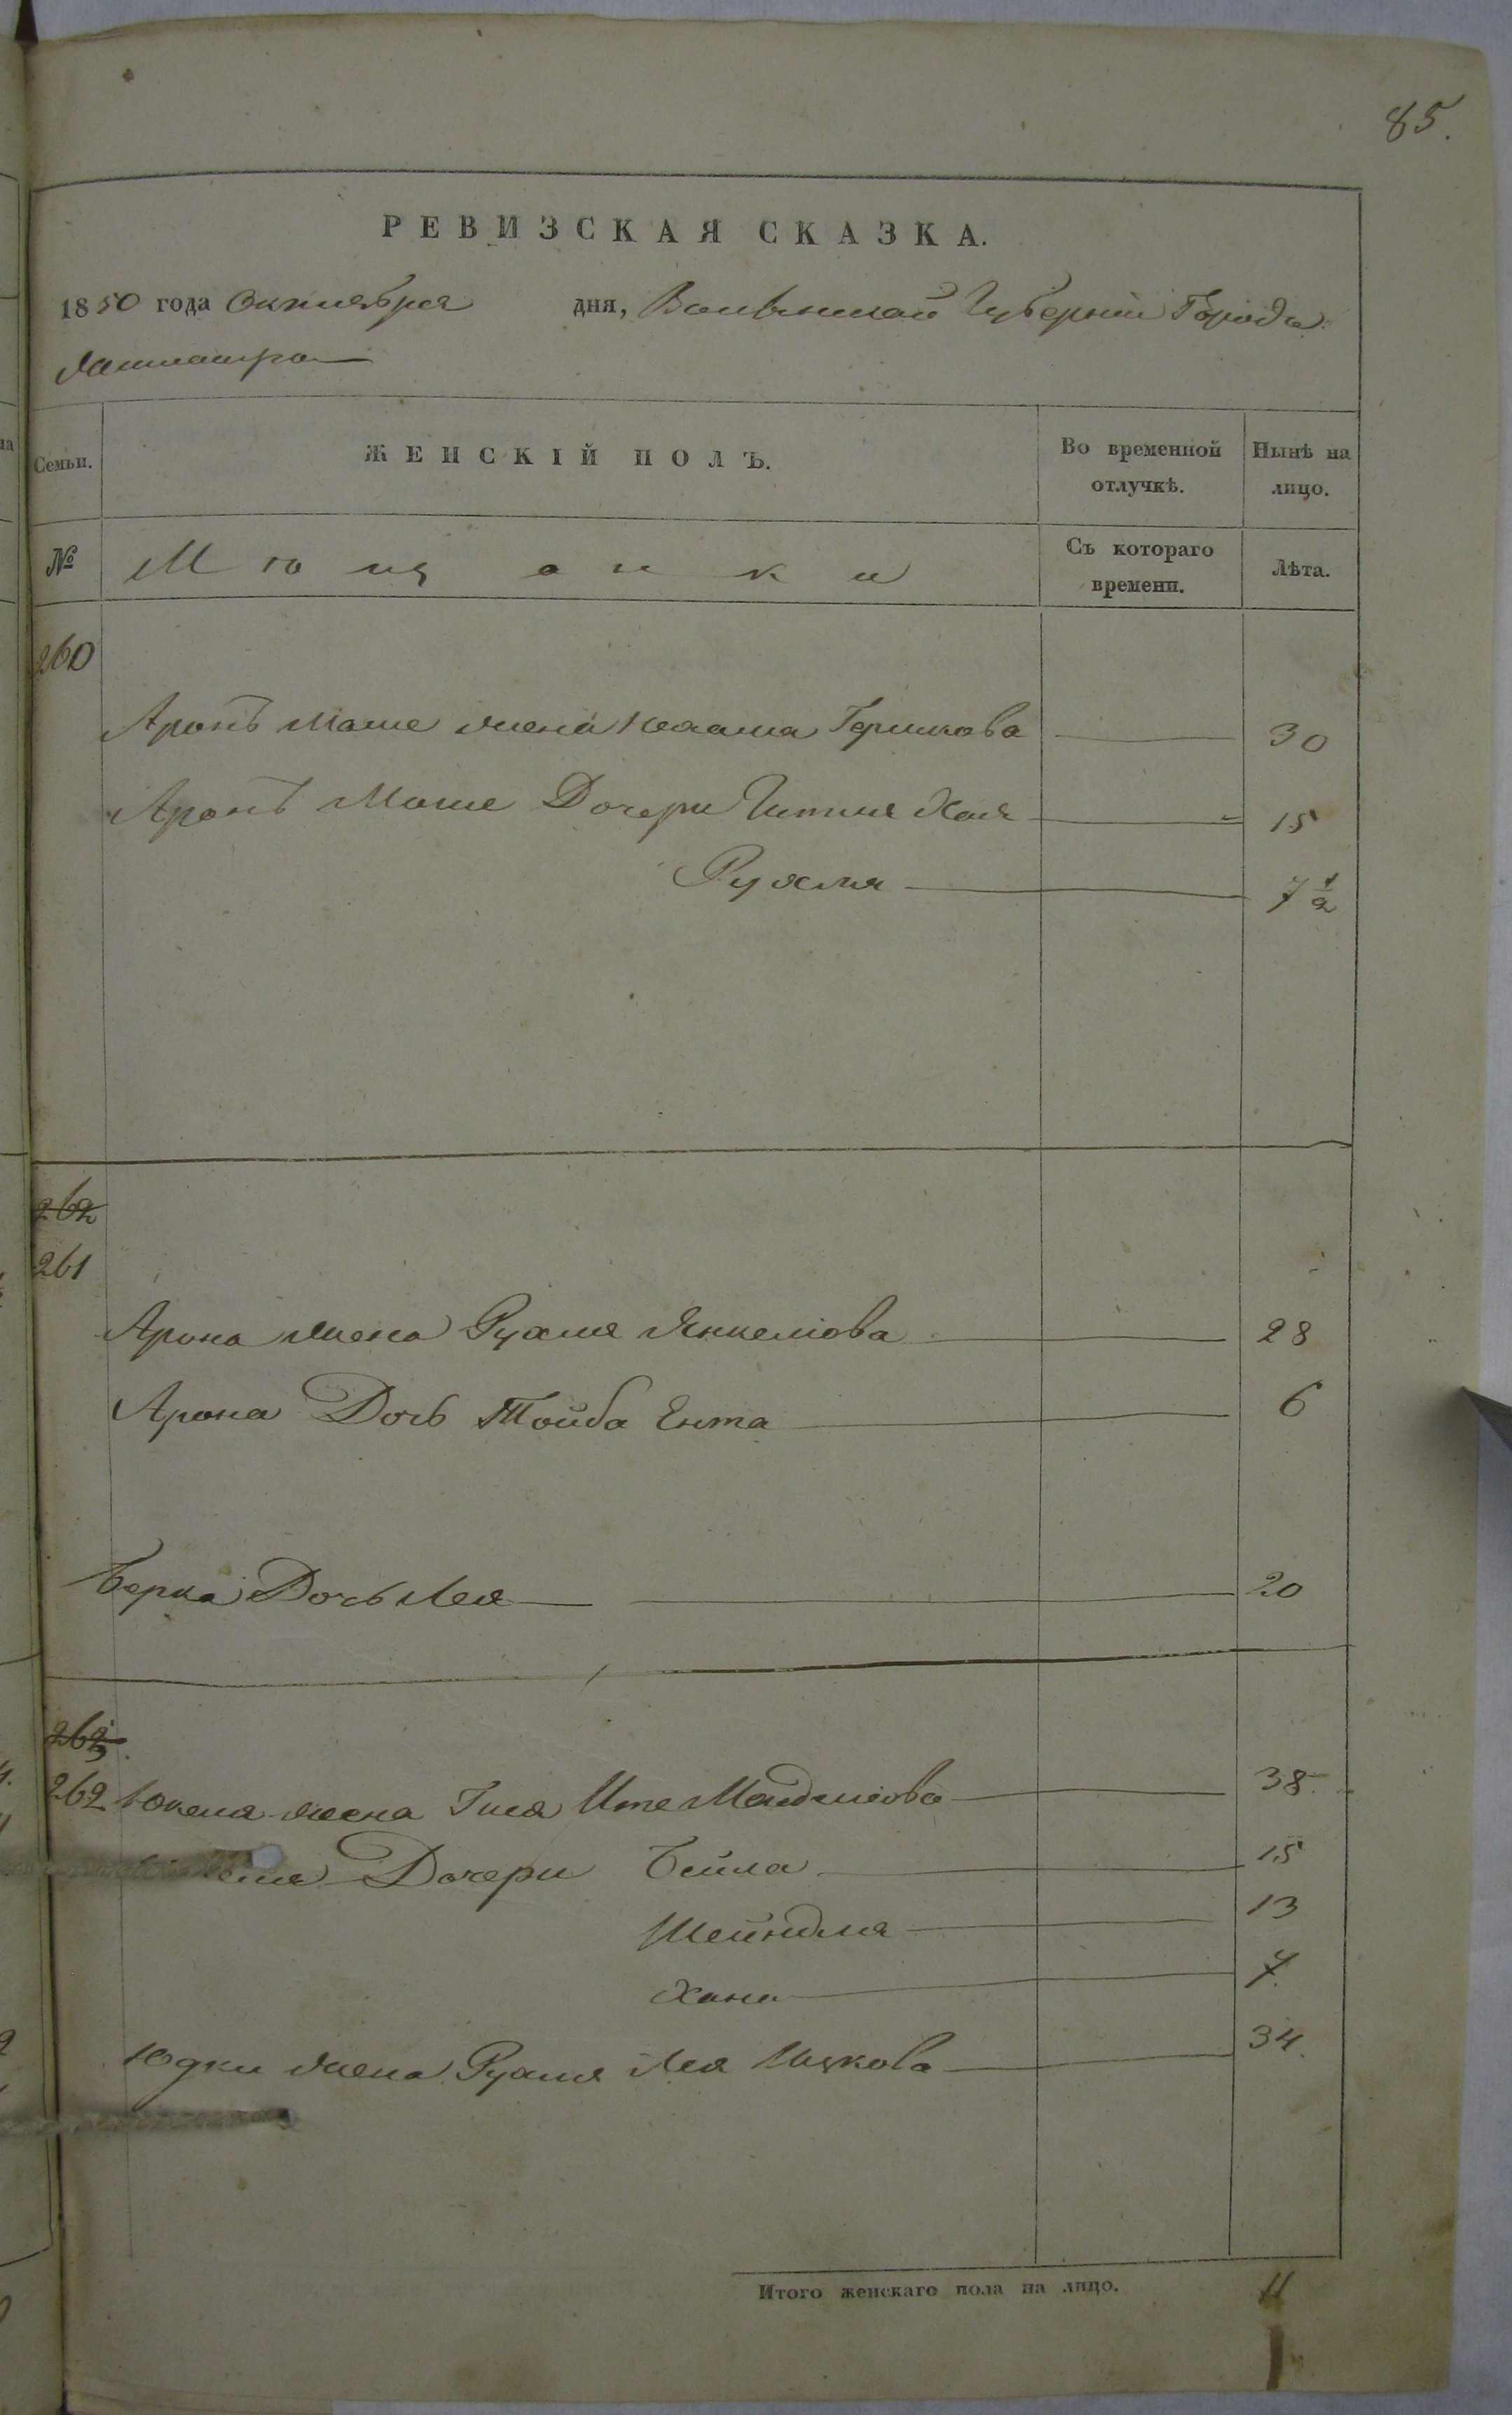 85.
РЕВИЗСКАЯ СКАЗКА.
1850 года Октября дня, Волынской Губерніи Города
Семьи. ЖЕНСКІЙ ПОЛЪ. Во временной отлучкѣ. Нынѣ на лицо.
№ Мѣщанки Съ котораго времени. Лѣта.
260
Аронъ Моше жена Гершкова 30
Аронъ Моше Дочери Хая 15
Рухля 7 1/2
262
261
Арона жена Рухля Янкелiова 28
Арона Дочь Тойба Ента 6
Берка Дочь Лея 20
263
262 жена Ите 38
Дочери Бейла 15
Шейндля 13
Хана 7.
Юдки жена Рухля Лея Ицкова 34.
Итого женскаго пола на лицо. 11